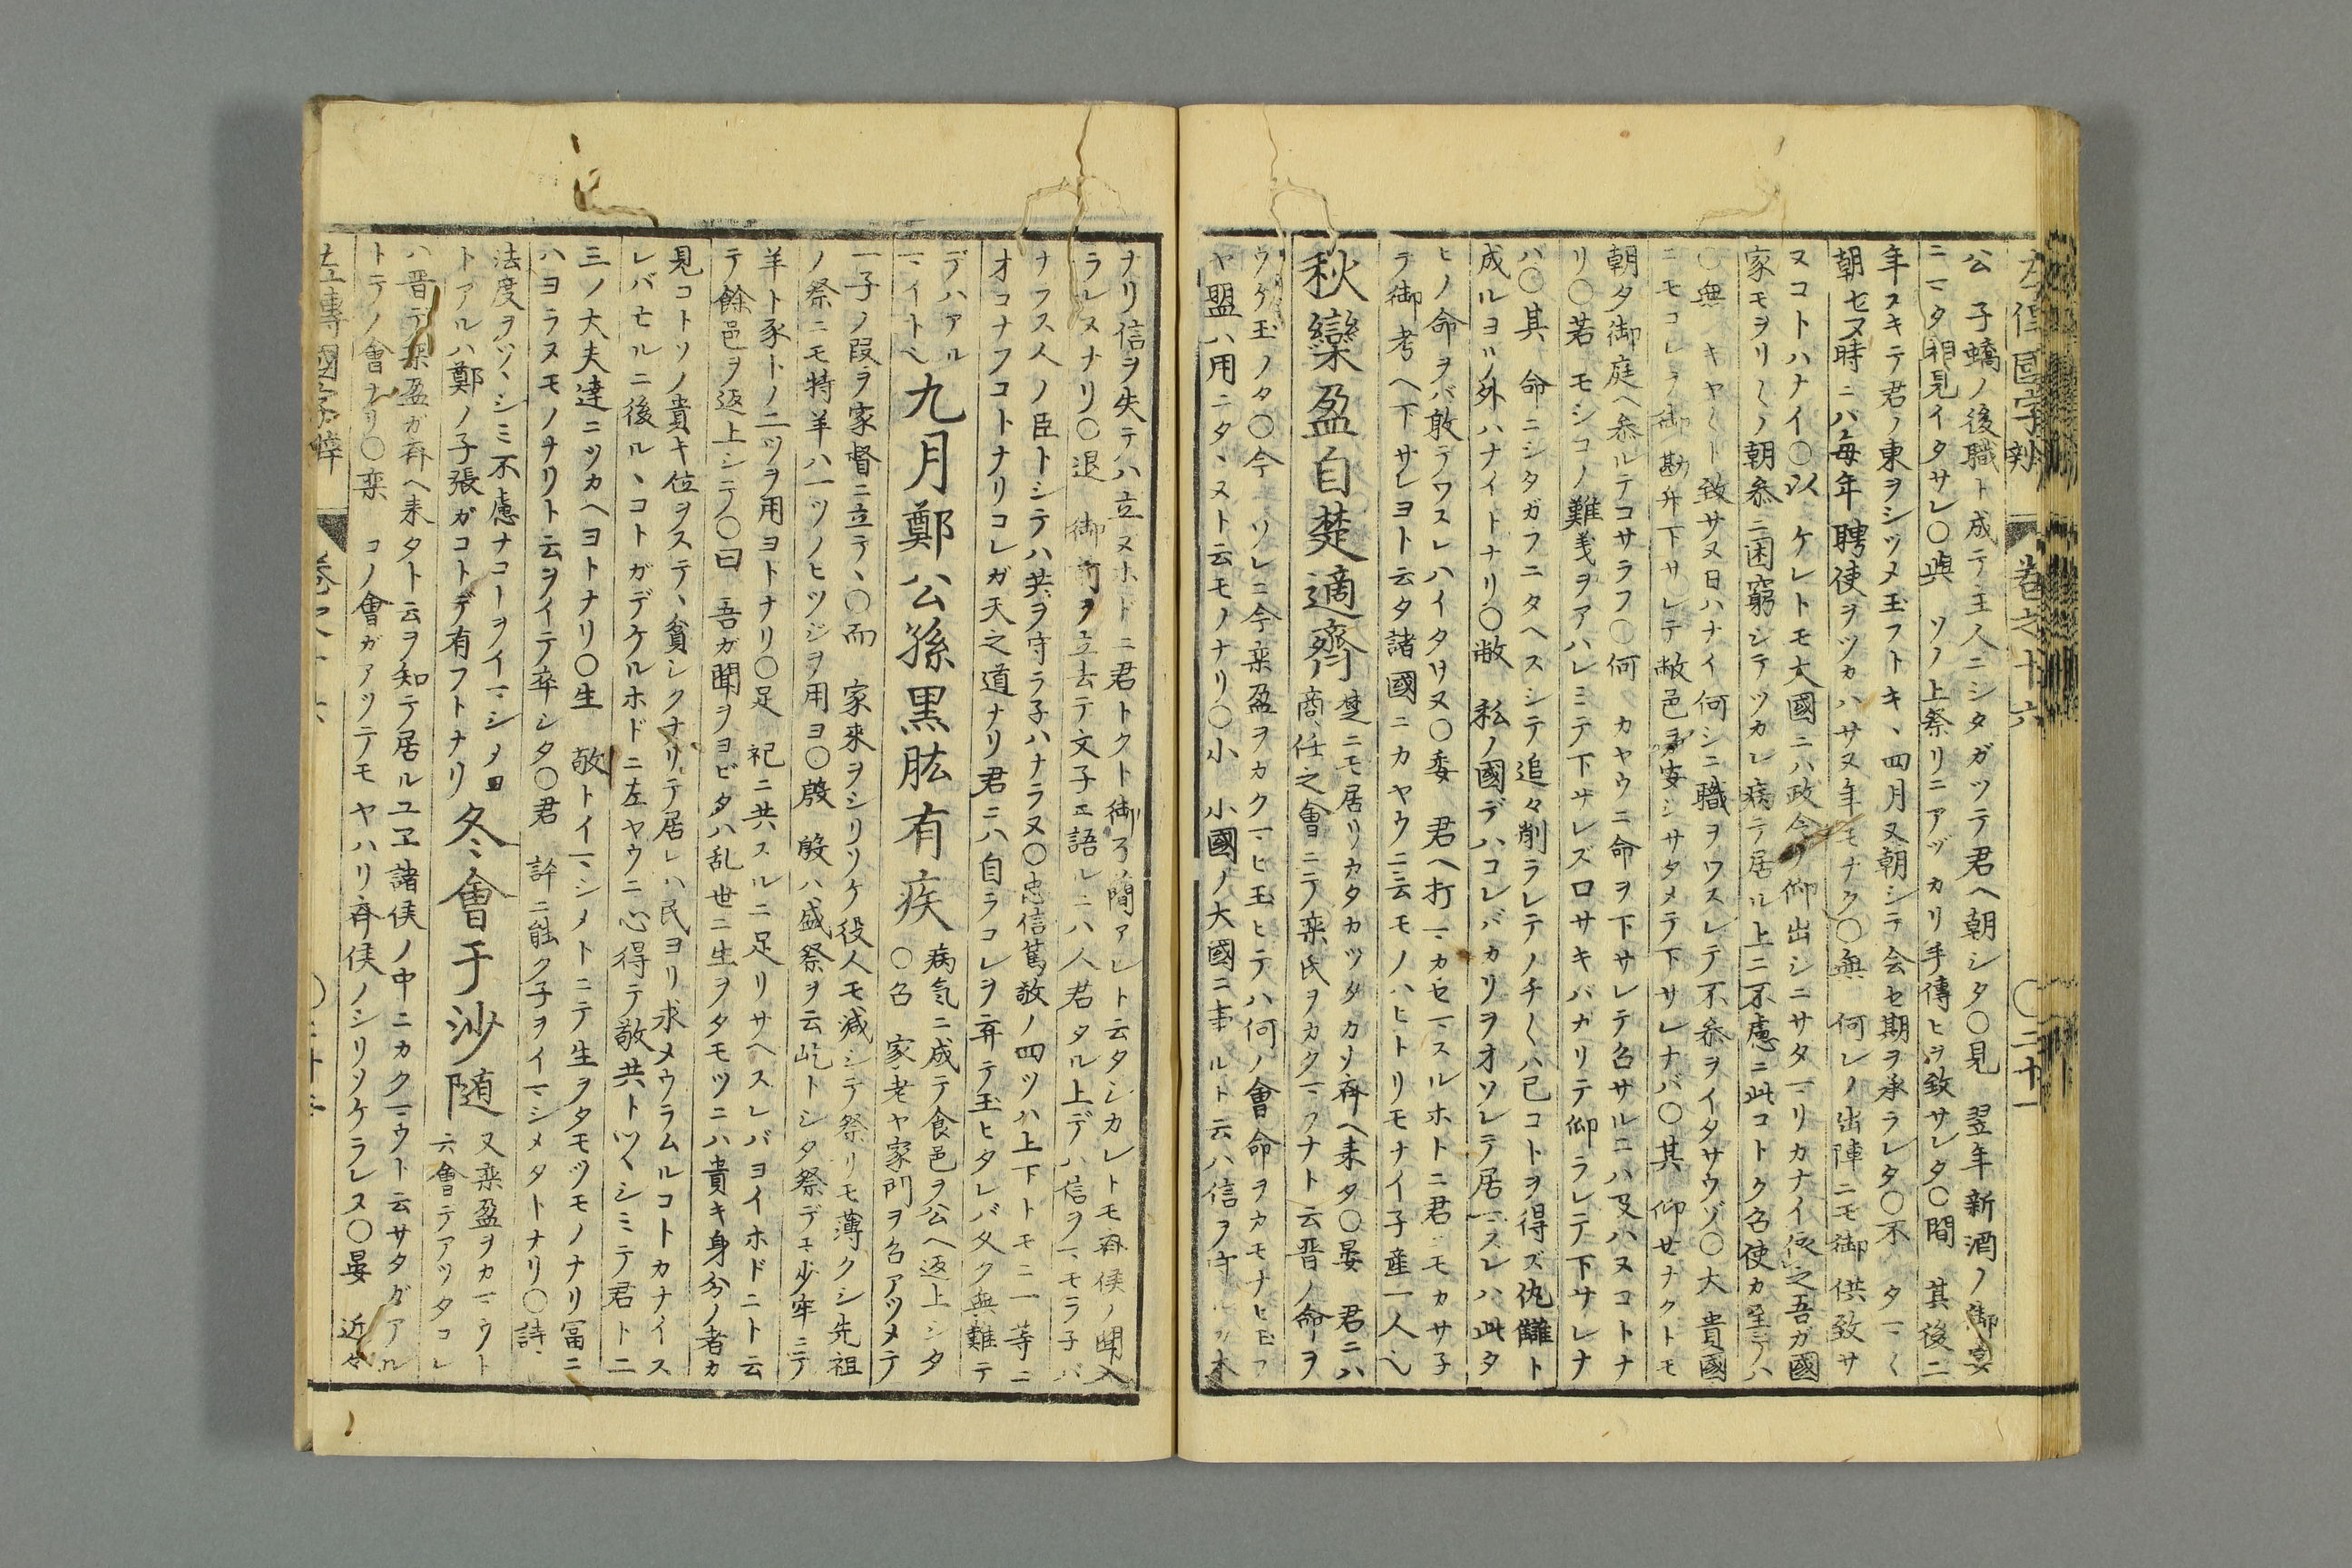 左傳國字辯 卷之十六 〇二十一
公 子蟜ノ後職ト成テ王人ニシタガツテ君ヘ朝シタ〇見 翌年新酒ノ御宴
ニマタ相見イタサレ〇與 ソノ上祭リニアヅカリ手傳ヒヲ致サレタ〇間 其後二
年スキテ君ノ東ヲシツメ玉フトキ、四月又朝シテ会セ期ヲ承ラレタ〇不 タマ〱
朝セヌ時ニハ毎年聘使ヲツカハサヌ年モナク〇無 何レノ出陣ニモ御供致サ
ヌコトハナイ〇以 ケレトモ大國ニハ政令ヲ仰出シニサタマリカナイ仮之吾ガ國
家モヲリ〱ノ朝参ニ困窮シテツカレ病テ居ル上ニ不慮ニ此コトク召使カ至テハ
〇無 キヤ〱ト致サヌ日ハナイ何シニ職ヲワスレテ不参ヲイタサウゾ〇大 貴國
ニモコレヲ御勘弁下サレテ敝邑ヲ安シサタメテ下サレナバ〇其 仰せナクトモ
朝夕御庭ヘ参ルテコサラフ〇何 カヤウニ命ヲ下サレテ召サルニハ及ハヌコトナ
リ〇若 モシコノ難義ヲアハレミテ下サレズロサキバカリテ仰ラレテ下サレナ
バ〇其 命ニシタガフニタヘスシテ追々削ラレテノチ〱ハ已コトヲ得ズ仇讎ト
成ルヨリ外ハナイトナリ〇敝 私ノ國デハコレバカリヲオソレテ居マスレハ此タ
ヒノ命ヲバ敢テワスレハイタサヌ〇委 君ヘ打マカセマスルホトニ君ニモカサ子
テ御考ヘ下サレヨト云タ諸國ニカヤウニ云モノハヒトリモナイ子産一人ヘ
秋欒盈自楚適齊 楚ニモ居リカタカツタカソ斉ヘ来タ〇晏 君ニハ
商任之會ニテ栾氏ヲカクマフナト云晋ノ命ヲ
ウケ玉ノタ〇今 ソレニ今栾盈ヲカクマヒ玉ヒテハ何ノ會命ヲカモナヒ玉フ
ヤ盟ハ用ニタヽヌト云モノナリ〇小 小國ノ大國ニ事ルト云ハ信ヲ守ルカ本
ナリ信ヲ失テハ立ヌホドニ君トクト御了簡アレト云タシカレトモ斉侯ノ聞入
ラレヌナリ〇退 御前ヲ立去テ文子エ語ルニハ人君タル上デハ信ヲマモラ子バ
ナフス人ノ臣トシテハ共ヲ守ラ子ハナラヌ〇忠信篤敬ノ四ツハ上下トモニ一等ニ
オコナフコトナリコレガ天之道ナリ君ニハ自ラコレヲ弃テ玉ヒタレバ久ク無難テ
デハアル
マイトヘ 九月鄭公孫黒肱有疾 病気ニ成テ食邑ヲ公ヘ返上シタ
〇召 家老ヤ家門ヲ召アツメテ
一子ノ段ヲ家督ニ立テヽ〇而 家来ヲシリソケ役人モ減シテ祭リモ薄クシ先祖
ノ祭ニモ特羊ハ一ツノヒツジヲ用ヨ〇殷 殷ハ盛祭ヲ云此トシタ祭デモ少牢ニテ
羊ト豕トノ二ツヲ用ヨトナリ〇足 祀ニ共スルニ足リサヘスレバヨイホドニト云
テ餘邑ヲ返上シテ〇曰 吾ガ聞ヲヨビタハ乱世ニ生ヲタモツニハ貴キ身分ノ者カ
見コトソノ貴キ位ヲステヽ貧シクナリテ居レハ民ヨリ求メウラムルコトカナイス
レバ亡ルニ後ルヽコトガデケルホドニ左ヤウニ心得テ敬共トツヽシミテ君ト二
三ノ大夫達ニツカヘヨトナリ〇生 敬トイマシメトニテ生ヲタモツモノナリ冨ニ
ハヨラヌモノナリト云ヲイテ卒シタ〇君 許ニ能ク子ヲイマシメタトナリ〇詩
法度ヲツヽシミ不慮ナコトヲイマシノヨ
トアルハ鄭ノ子張ガコトデ有フトナリ 冬會于沙随 又栾盈ヲカマウト
云會テアツタコレ
ハ晋テ栾盈ガ斉ヘ来タト云ヲ知テ居ルユヱ諸侯ノ中ニカクマウト云サタガアル
トテノ會ナリ〇栾 コノ會ガアツテモヤハリ斉侯ノシリソケラレヌ〇晏 近々
左傳國字辯 卷之十六